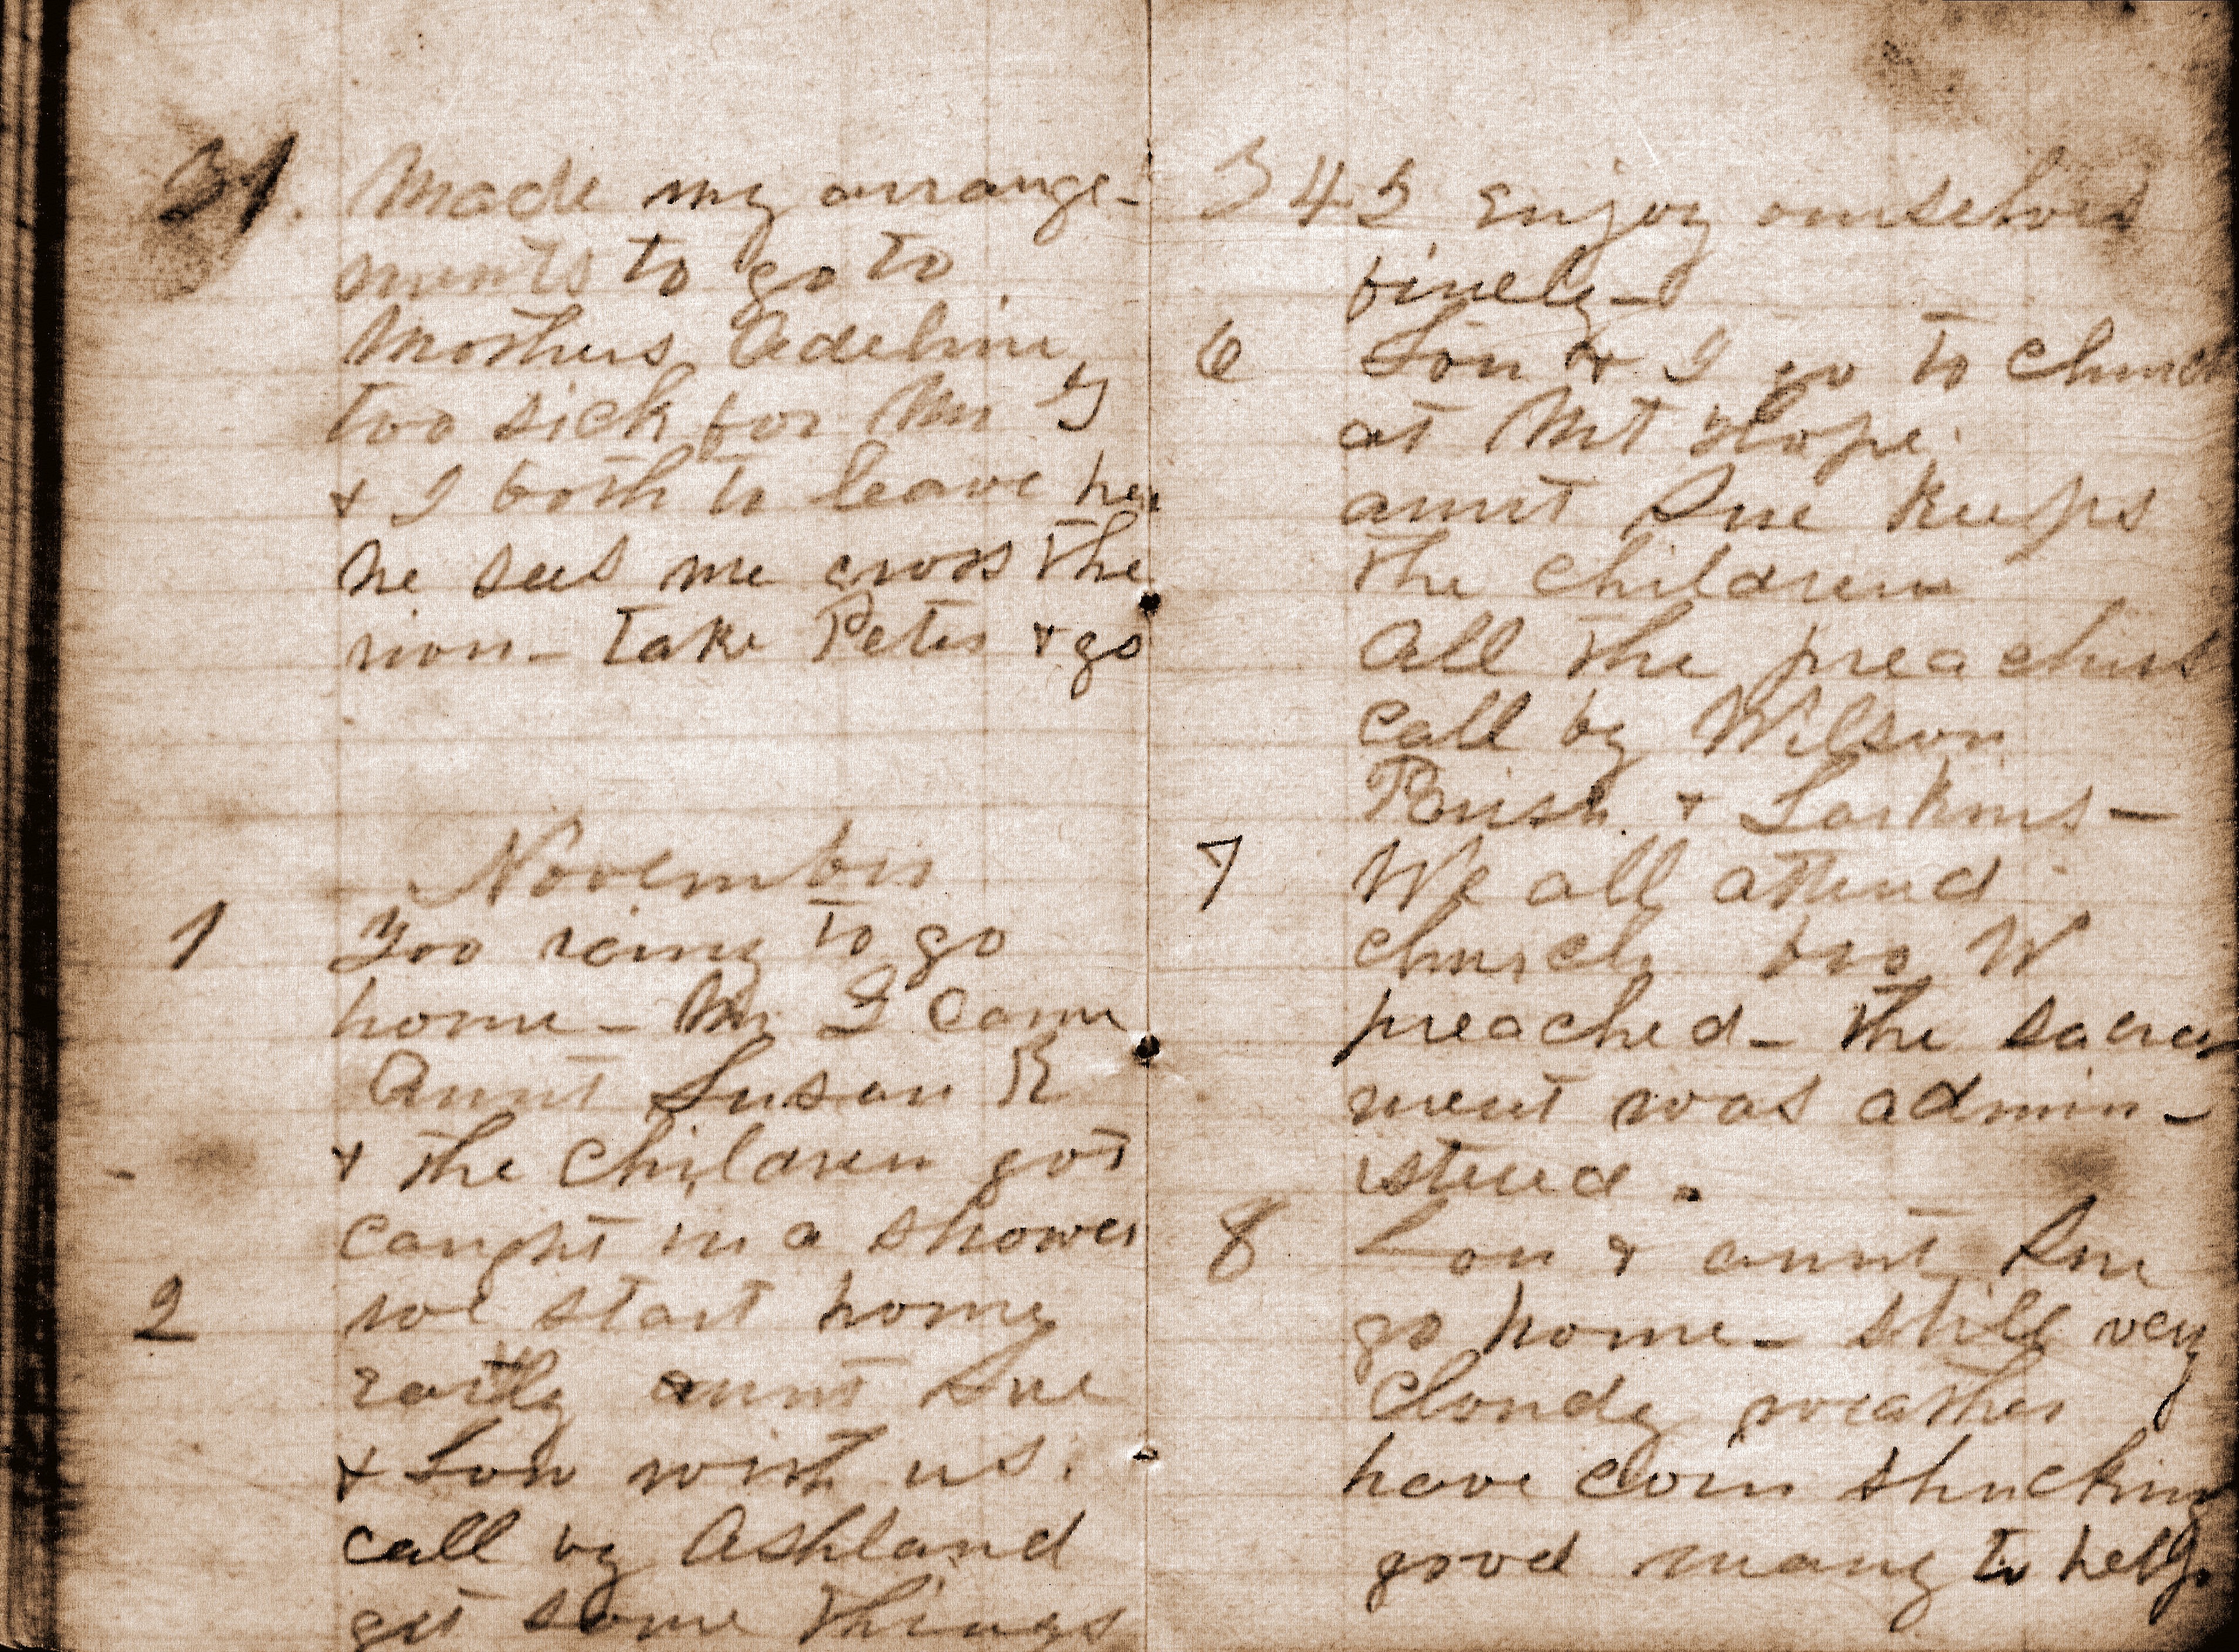 31. Made my arrange-
ments to go to
Mothers Adeline
too sick for Mr
& I both to leave her
he sees me cross the
river - take Peter & go
November
1 Too rainy to go
home - Mr came
Aunt Susan R
& the children got
caught in a shower
2 we start home
early aunt Sue
& Lou with us.
call by Ashland
get some things
3 4 5 Enjoy ourselves
finely -
6 Lou & I go to church
at Mt Hope.
aunt Sue keeps
the children
All the preachers
call by Wilson
& Larkins -
7 We all attend
church bro W
preached - the sacra
ment was admin -
istered.
8 Lou & aunt Sue
go home - still very
cloudy weather
have corn shucking
good many to help.